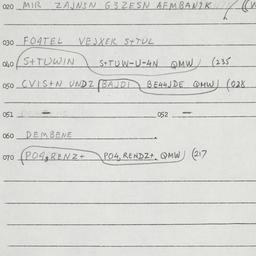 020 MIR ZAJNSN G3ZESN AFMBANIK
030 FO4TEL VEJXER S+TUL
040 S+TUWIN S+TUW-U-4N QMW (235
050 CVIS+N UNDZ BAJDI BE44JDE QMW (028
051 052 —
060 DEMBENE .
070 PO4,RENZ+ PO4,RENDZ+. QMW (217